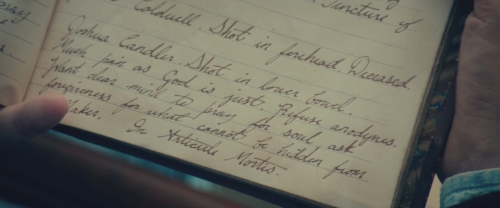 Juncture of
Coldwell. Shot in forehead. Deceased.
Joshua Candler. Shot in lower bowel.
Much pain as God is just. Refuse anodynes.
Want clear mind to pray for soul ask
forgiveness for what cannot be hidden from
Maker.
In Articulo Mortis.